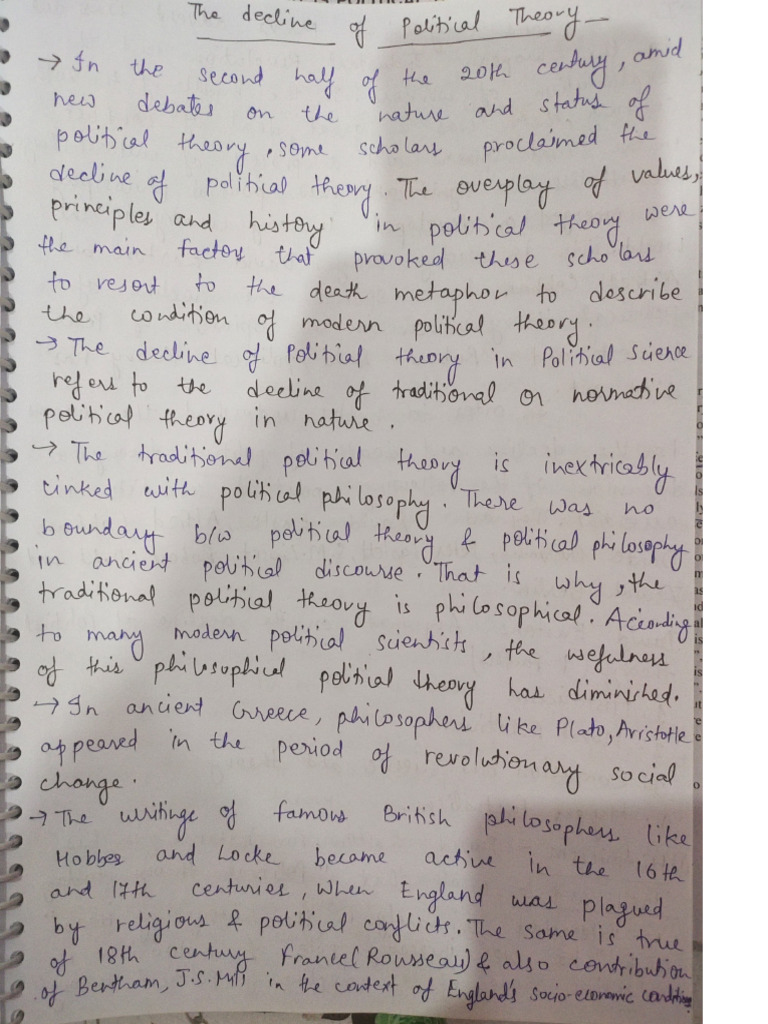 The decline of Political Theory
→ In the second half of the 20th century, amid
new debates on the nature and status of
political theory, some scholars proclaimed the
decline of political theory. The overplay of values,
principles and history in political theory were
the main factors that provoked these scholars
to resort to the death metaphor to describe
the condition of modern political theory.
→ The decline of Political theory in Political Science
refers to the decline of traditional or normative
political theory in nature.
→ The traditional political theory is inextricably
linked with political philosophy. There was no
boundary b/w political theory & political philosophy
in ancient political discourse. That is why, the
traditional political theory is philosophical. According
to many modern political scientists, the usefulness
of this philosophical political theory has diminished.
→ In ancient Greece, philosophers like Plato, Aristotle
appeared in the period of revolutionary social
change.
→ The writings of famous British philosophers like
Hobbes and Locke became active in the 16th
and 17th centuries, when England was plagued
by religious & political conflicts. The same is true
of 18th century France (Rousseau) & also contribution
of Bentham, J.S. Mill in the context of England's socio-economic condition